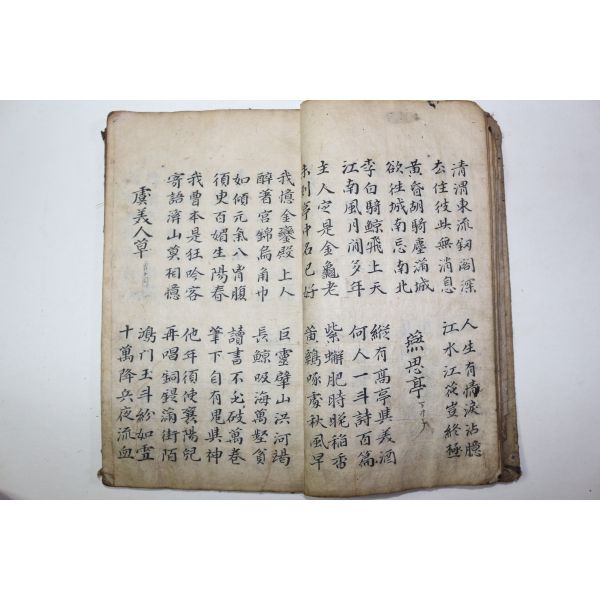 清渭東流釰閣深
去住彼此無消息
人生有情淚沾臆
江水江花豈終極
黃昏胡騎塵滿城
欲往城南忘南北
燕思亭
李白騎鯨飛上天
江南風月閒多年
縱有高亭與美酒
何人一斗詩百篇
主人定是金龜老
未到亭中名已好
紫蠏肥時晩稻香
黃鷄啄處秋風早
我憶金鑾殿上人
醉著宮錦烏角巾
巨靈擘山洪河渴
長鯨吸海萬壑貧
如傾元氣入胷腹
須臾百媚生陽春
讀書不必破萬卷
筆下自有鬼與神
我曹本是狂吟客
寄語溪山莫相憶
他年須使襄陽兒
再唱銅鍉滿街陌
虞美人草
鴻門玉斗紛如雪
十萬降兵夜流血